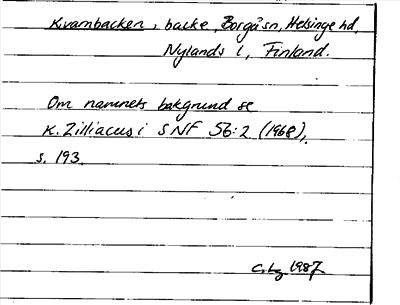 Kvarnbacken, backe, Borgå sn, Helsinge hd,
Nylands l, Finland.
Om namnets bakgrund se
K. Zilliacus i SNF 56:2 (1968),
s. 193.
C. Lg 1987